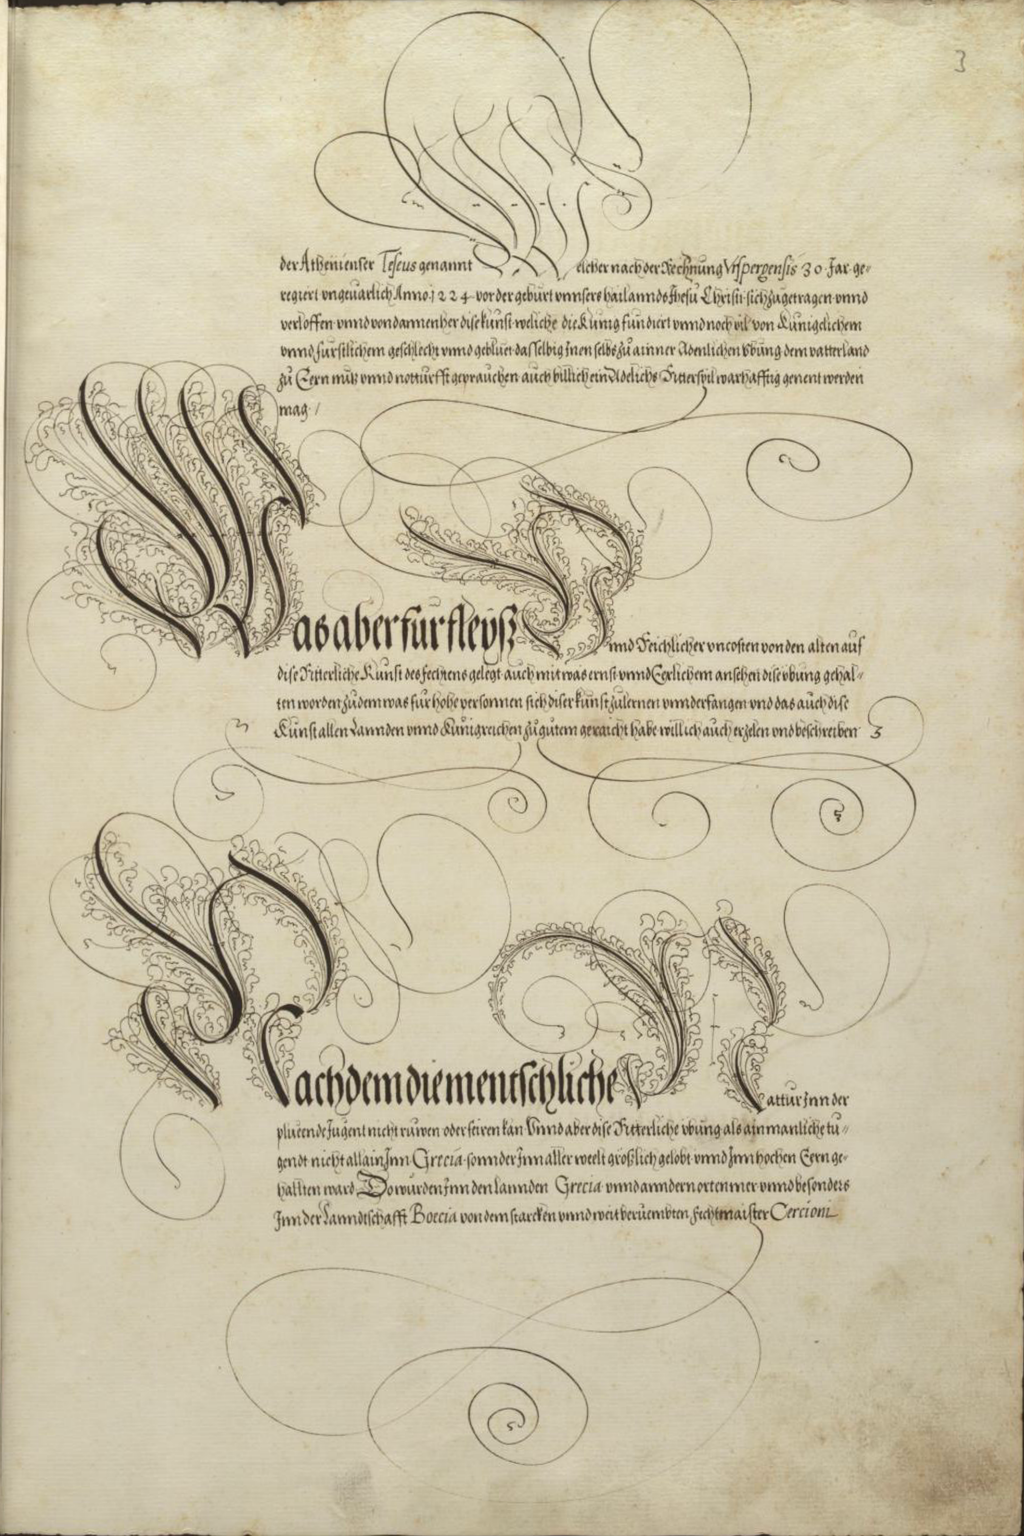 3
der Athenienser Teseus genannt Welcher nach der Rechnung Vrspergensis 30 Jar ge-
regiert vngeuarlich Anno 1224 vor der geburt vnnsers hailannds Jhesu Christi sich zugetragen vnnd
verloffen vnnd von dannen her dise kunst weliche die Kunig fundiert vnnd noch vil von Kunigclichem
vnnd furstlichem geschlecht vnnd gebluet dasselbig Inen selbs zu ainner Adenlichen vbung dem vatterland
zu Eern nutz vnnd notturfft geprauchen auch billich ein Adelichs Ritterspil warhafftig genent werden
mag /
Was aber fur fleysz Vnnd Reichlicher vncosten von den alten auf
dise Ritterliche Kunst des fechtens gelegt auch mit was ernst vnnd Eerlichem ansehen dise vbung gehal-
ten worden zudem was fur hohe personnen sich diser kunst zulernen vnnderfangen vnd das auch dise
Kunst allen Lannden vnnd Kunigreichen zu gutem geraicht habe will ich auch erzelen vnd beschreiben
Nach dem die mentschliche Nattur Inn der
plueende Jugent nicht ruwen oder feiren kan Vnnd aber dise Ritterliche vbung als ain manliche tu-
gendt nicht allain Inn Grecia sonnder Inn aller weelt groszlich gelobt vnnd Inn hochen Eern ge-
hallten ward Do wurden Inn den Lannden Grecia vnnd anndern orten mer vnnd besonders
Inn der Lanndtschafft Boecia von dem starcken vnnd weit beruembten fechtmaister Cercioni